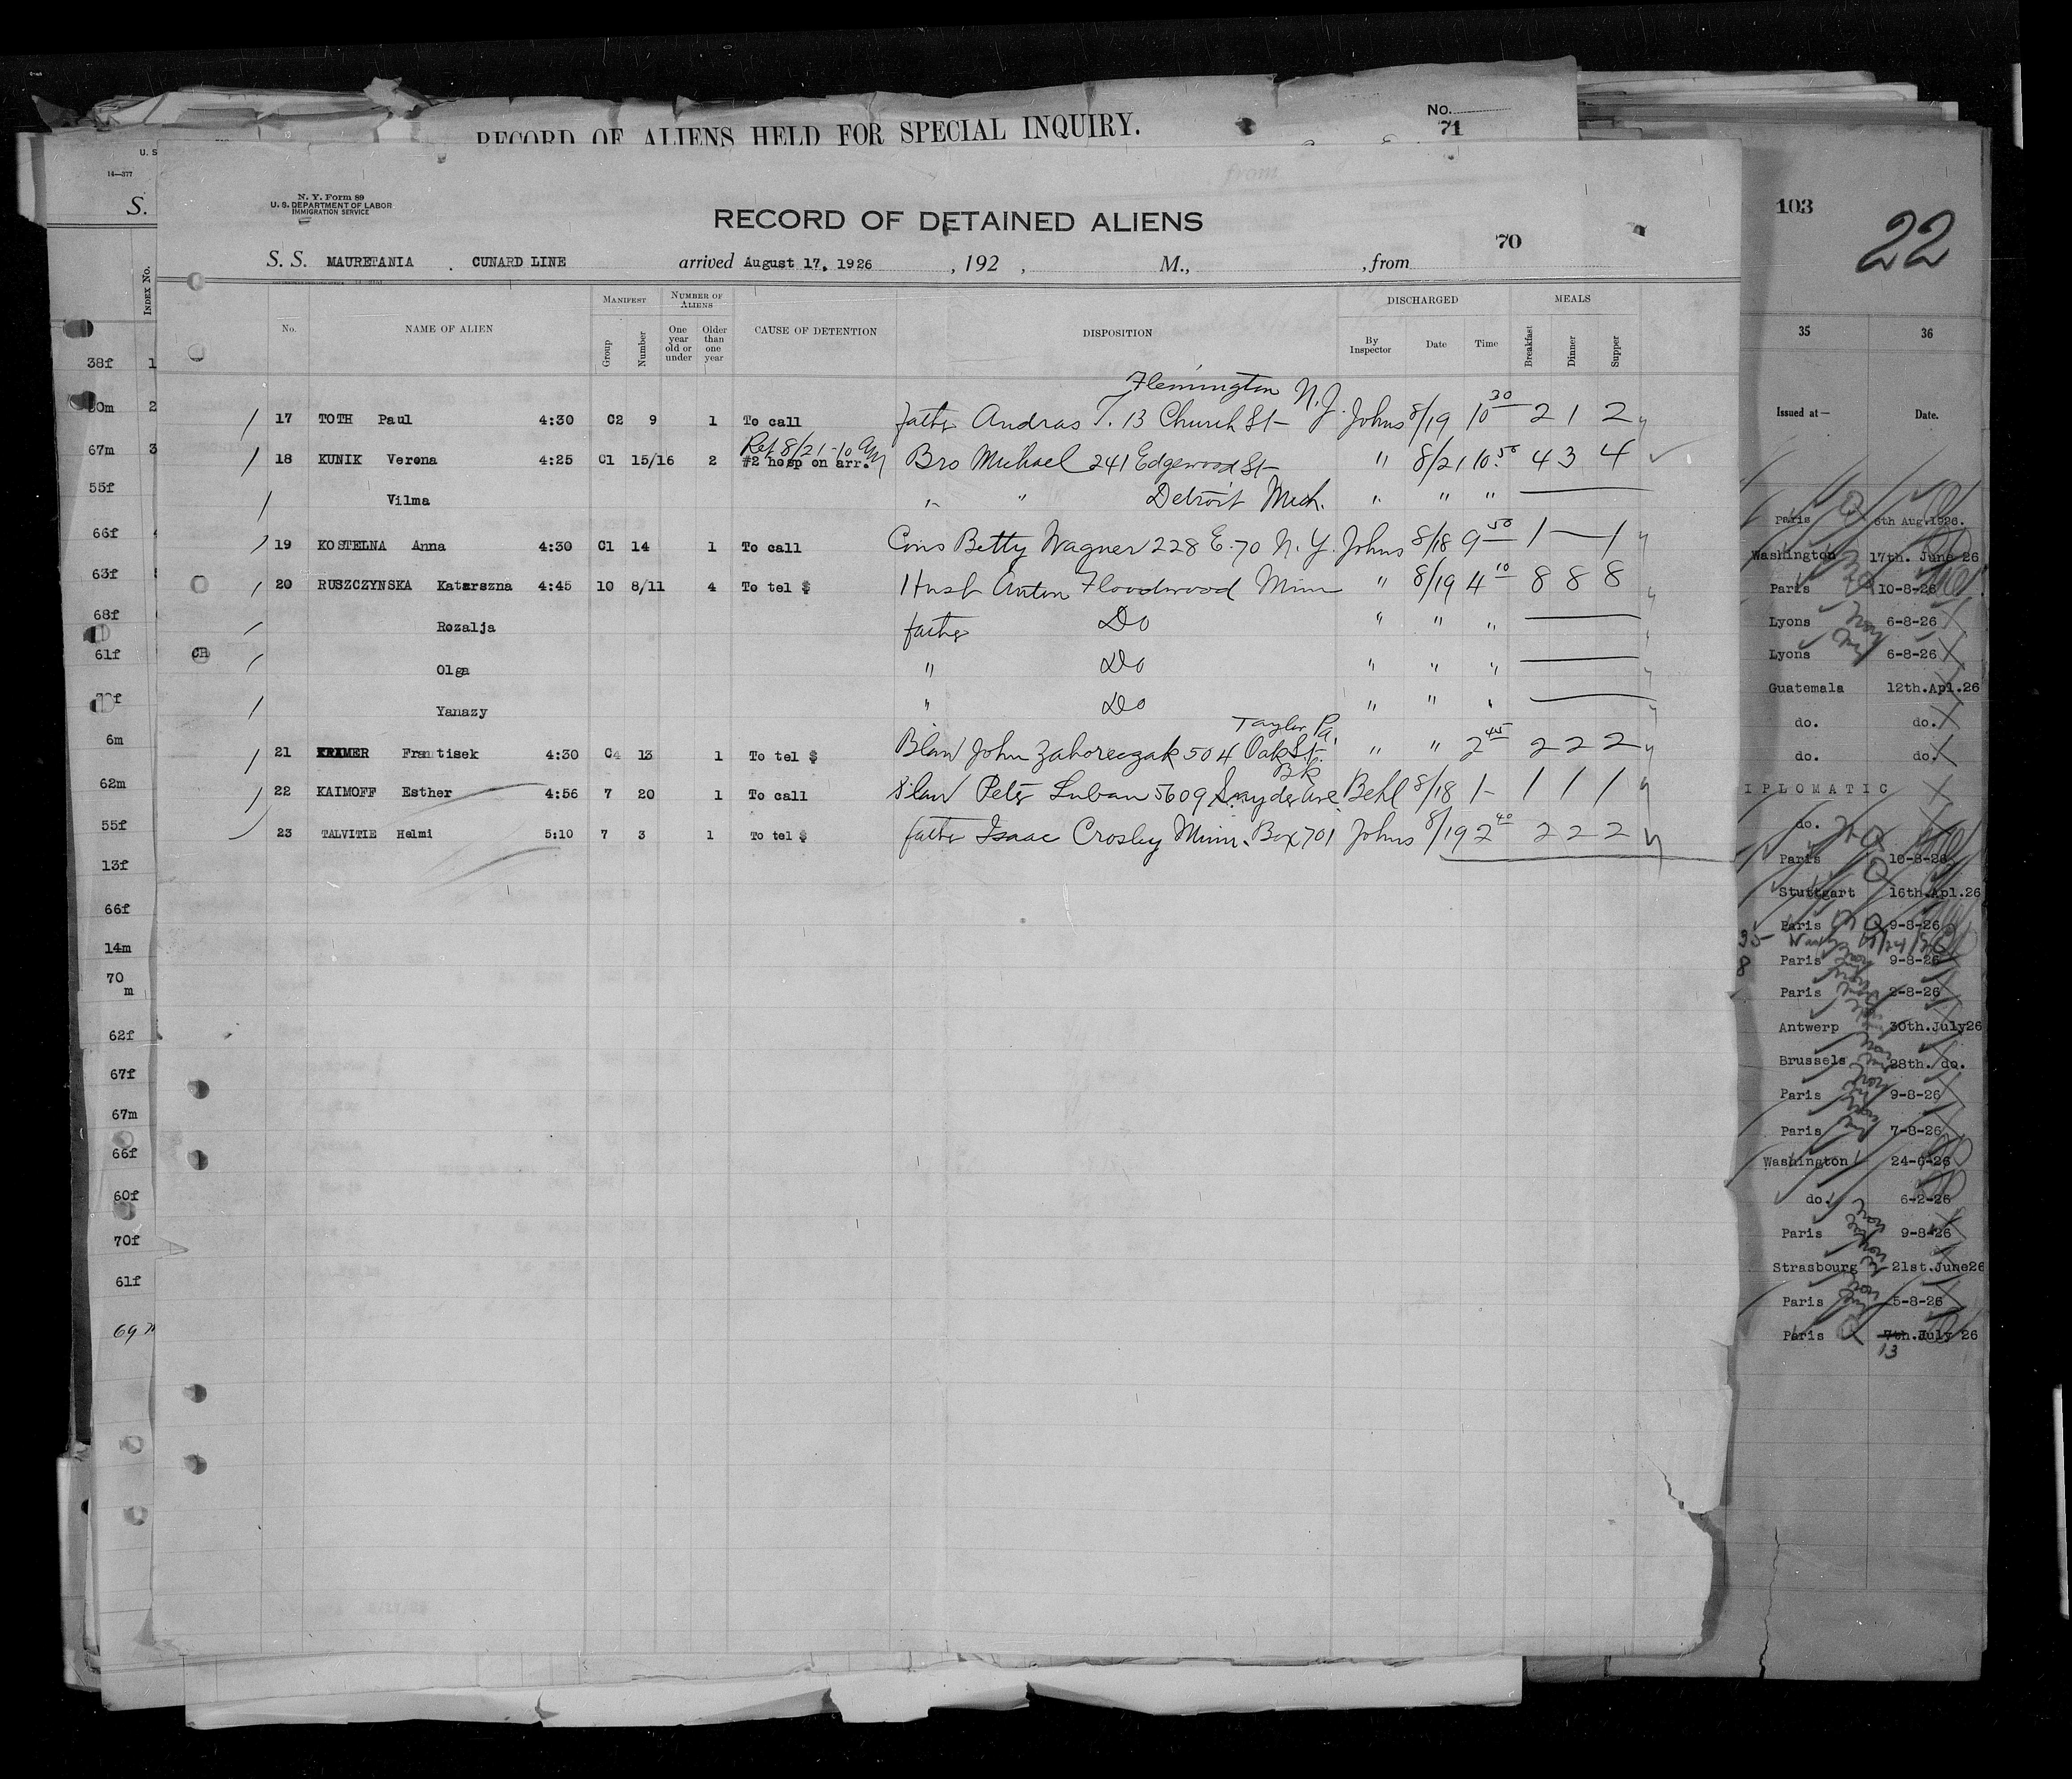 RECORD OF ALIENS HELD FOR SPECIAL INQUIRY.
No.
71
U. S
14—377
S.
INDEX No.
N. Y. Form 89
U. S. DEPARTMENT OF LABOR
IMMIGRATION SERVICE
RECORD OF DETAINED ALIENS
70
S. S. MAURETANIA . CUNARD LINE arrived August 17, 1926 , 192 , M., , from
No. NAME OF ALIEN MANIFEST Group Number NUMBER OF ALIENS One year old or under Older than one year CAUSE OF DETENTION DISPOSITION DISCHARGED By Inspector Date Time MEALS Breakfast Dinner Supper
Flemington N.J.
17 TOTH Paul 4:30 C2 9 1 To call father Andras T. 13 Church St Johns 8/19 10 30 2 1 2
Ref 8/21-10 AM
18 KUNIK Verona 4:25 C1 15/16 2 #2 hosp on arr. Bro Michael 241 Edgewood St " 8/21 10 50 4 3 4
Vilma " " Detroit Mich. " " "
19 KOSTELNA Anna 4:30 C1 14 1 To call Cous Betty Wagner 228 E. 70 N. Y. Johns 8/18 9 50 1 — 1
20 RUSZCZYNSKA Katarszna 4:45 10 8/11 4 To tel $ Husb Anton Floodwood Minn " 8/19 4 10 8 8 8
Rozalja father Do " " "
CH
Olga " Do " " "
Yanazy " Do " " "
Taylor Pa.
21 KRAMER Frantisek 4:30 C4 13 1 To tel $ Blaw John Zahoreczak 504 Oak St. " " 2 45 2 2 2
Bk
22 KAIMOFF Esther 4:56 7 20 1 To call Slaw Peter Luban 5609 Snyder Ave Behl 8/18 1- 1 1 1
23 TALVITIE Helmi 5:10 7 3 1 To tel $ father Isaac Crosby Minn. Box 701 Johns 8/19 2 40 2 2 2
38f 1
30m 2
67m 3
55f
66f
63f
68f
61f
6m
62m
55f
13f
66f
14m
70
m
62f
67f
67m
66f
60f
70f
61f
69 m
103
22
35 36
Issued at— Date.
Paris 6th Aug.1926.
Washington 17th. June 26
Paris 10-8-26
Lyons 6-8-26
Lyons 6-8-26
Guatemala 12th.Apl.26
do. do.
do. do.
IPLOMATIC
do.
Paris 10-8-26
Stuttgart 16th.Apl.26
Paris 9-8-26
Paris 9-8-26
Paris 2-8-26
Antwerp 30th.July26
Brussels 28th. do.
Paris 9-8-26
Paris 7-8-26
Washington 24-6-26
do. 6-2-26
Paris 9-8-26
Strasbourg 21st.June26
Paris 5-8-26
Paris 7th.July 26
13